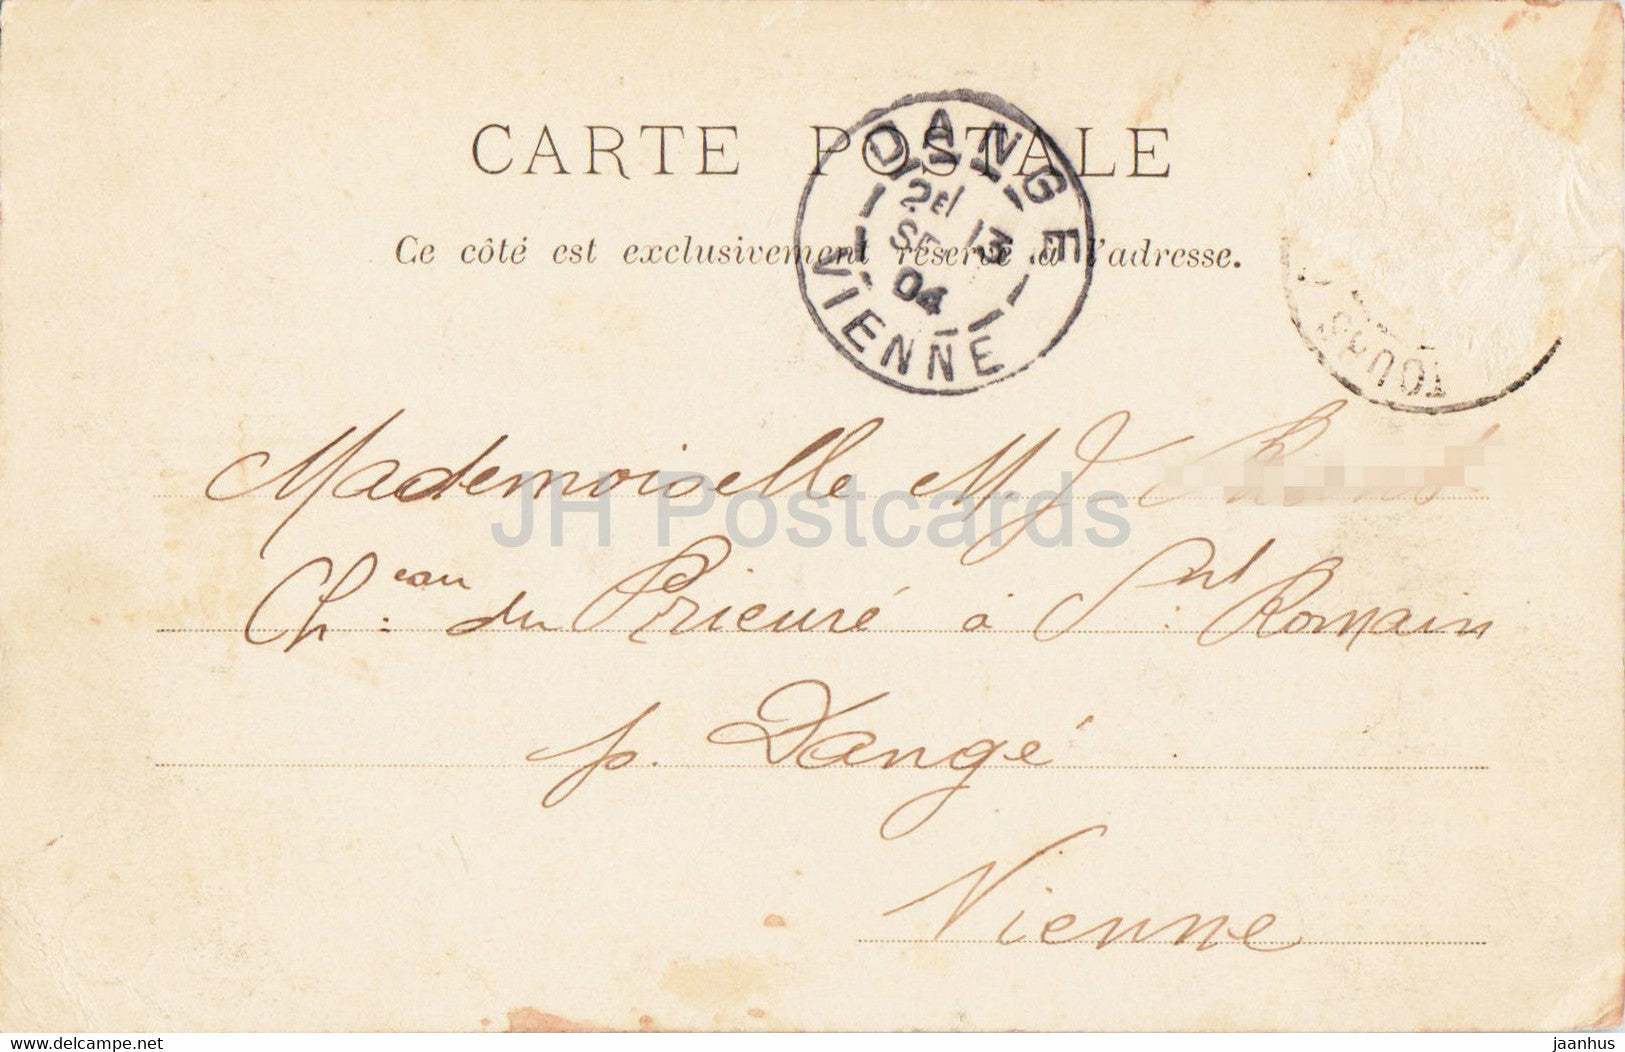 CARTE POSTALE
Ce côté est exclusivement réservé à l'adresse.
DANGE
2E 13
SE
04
VIENNE
TOURS
Mademoiselle M. J.
JH Postcards
Ch.eau du Prieuré à St. Romain
p. Dangé
Vienne
jh-postcards.delcampe.net
jaanhus